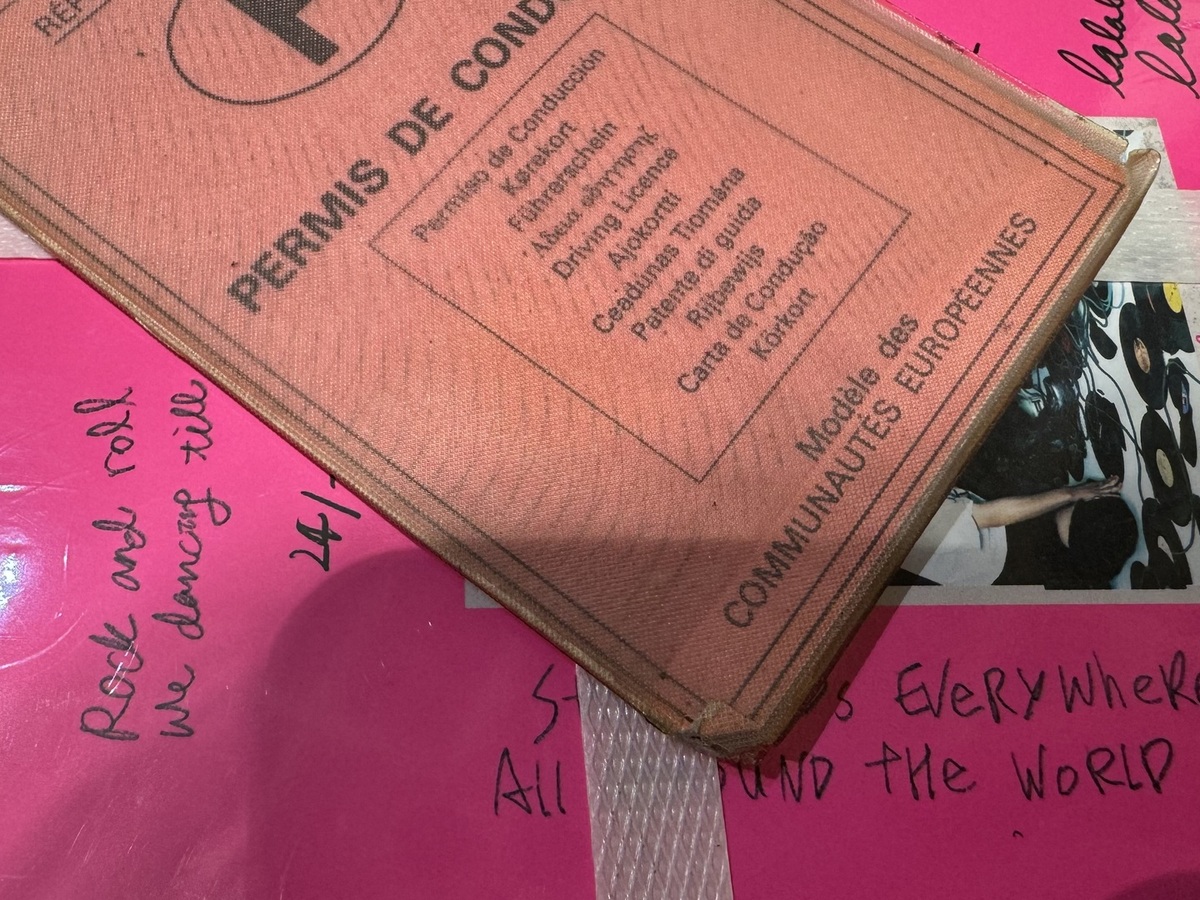 RÉP
F
PERMIS DE COND
Permiso de Conducción
Kørekort
Führerschein
Άδεια οδήγησης
Driving Licence
Ajokortti
Ceadúnas Tiomána
Patente di guida
Rijbewijs
Carta de Condução
Körkort
Modèle des
COMMUNAUTÉS EUROPÉENNES
lala
lala
Rock and roll
We dancing till
24/
EVERYWHERE
All
OUND THE WORLD